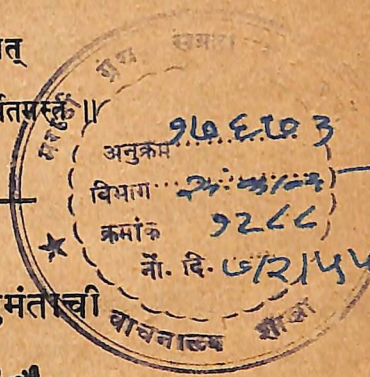 त्
र्तमस्तु ||
ग्रंथ
अनुक्रम १७६७३
विभाग
क्रमांक १२८८
नों. दि. ७/२/५५
मंताची
वाचनालय शाखा